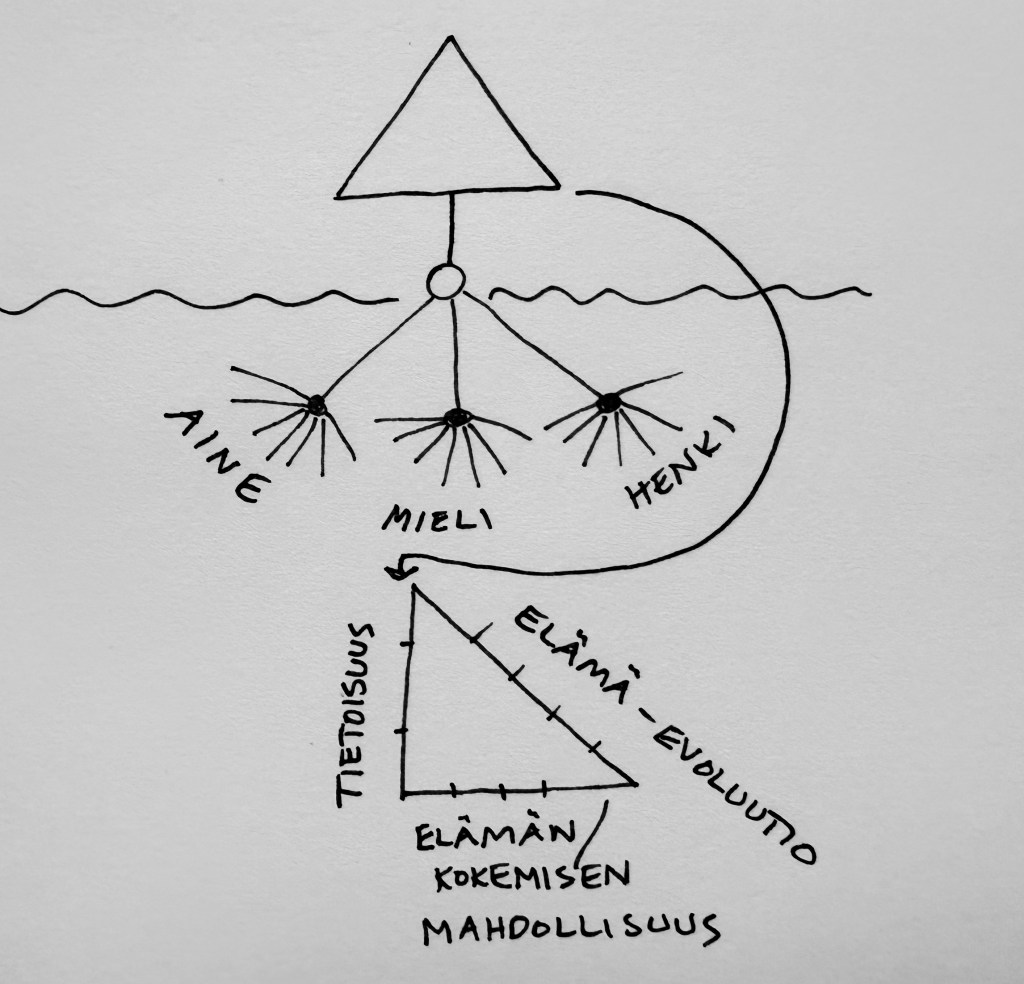 AINE
MIELI
HENKI
TIETOISUUS
ELÄMÄ - EVOLUUTIO
ELÄMÄN
KOKEMISEN
MAHDOLLISUUS